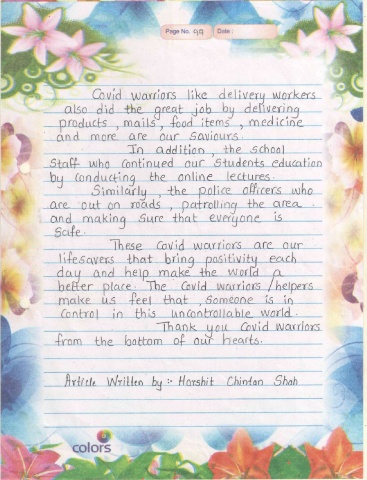 Page No. 99 Date :
Covid warriors like delivery workers
also did the great job by delivering
products , mails , food items , medicine
and more are our saviours.
In addition , the school
staff who continued our students education
by conducting the online lectures.
Similarly , the police officers who
are out on roads , patrolling the area .
and making sure that everyone is
safe.
These Covid warriors are our
lifesavers that bring positivity each
day and help make the world a
better place. The Covid warriors / helpers
make us feel that , someone is in
control in this uncontrollable world.
Thank you Covid warriors
from the bottom of our hearts.
Article Written by :- Harshit Chintan Shah
colors